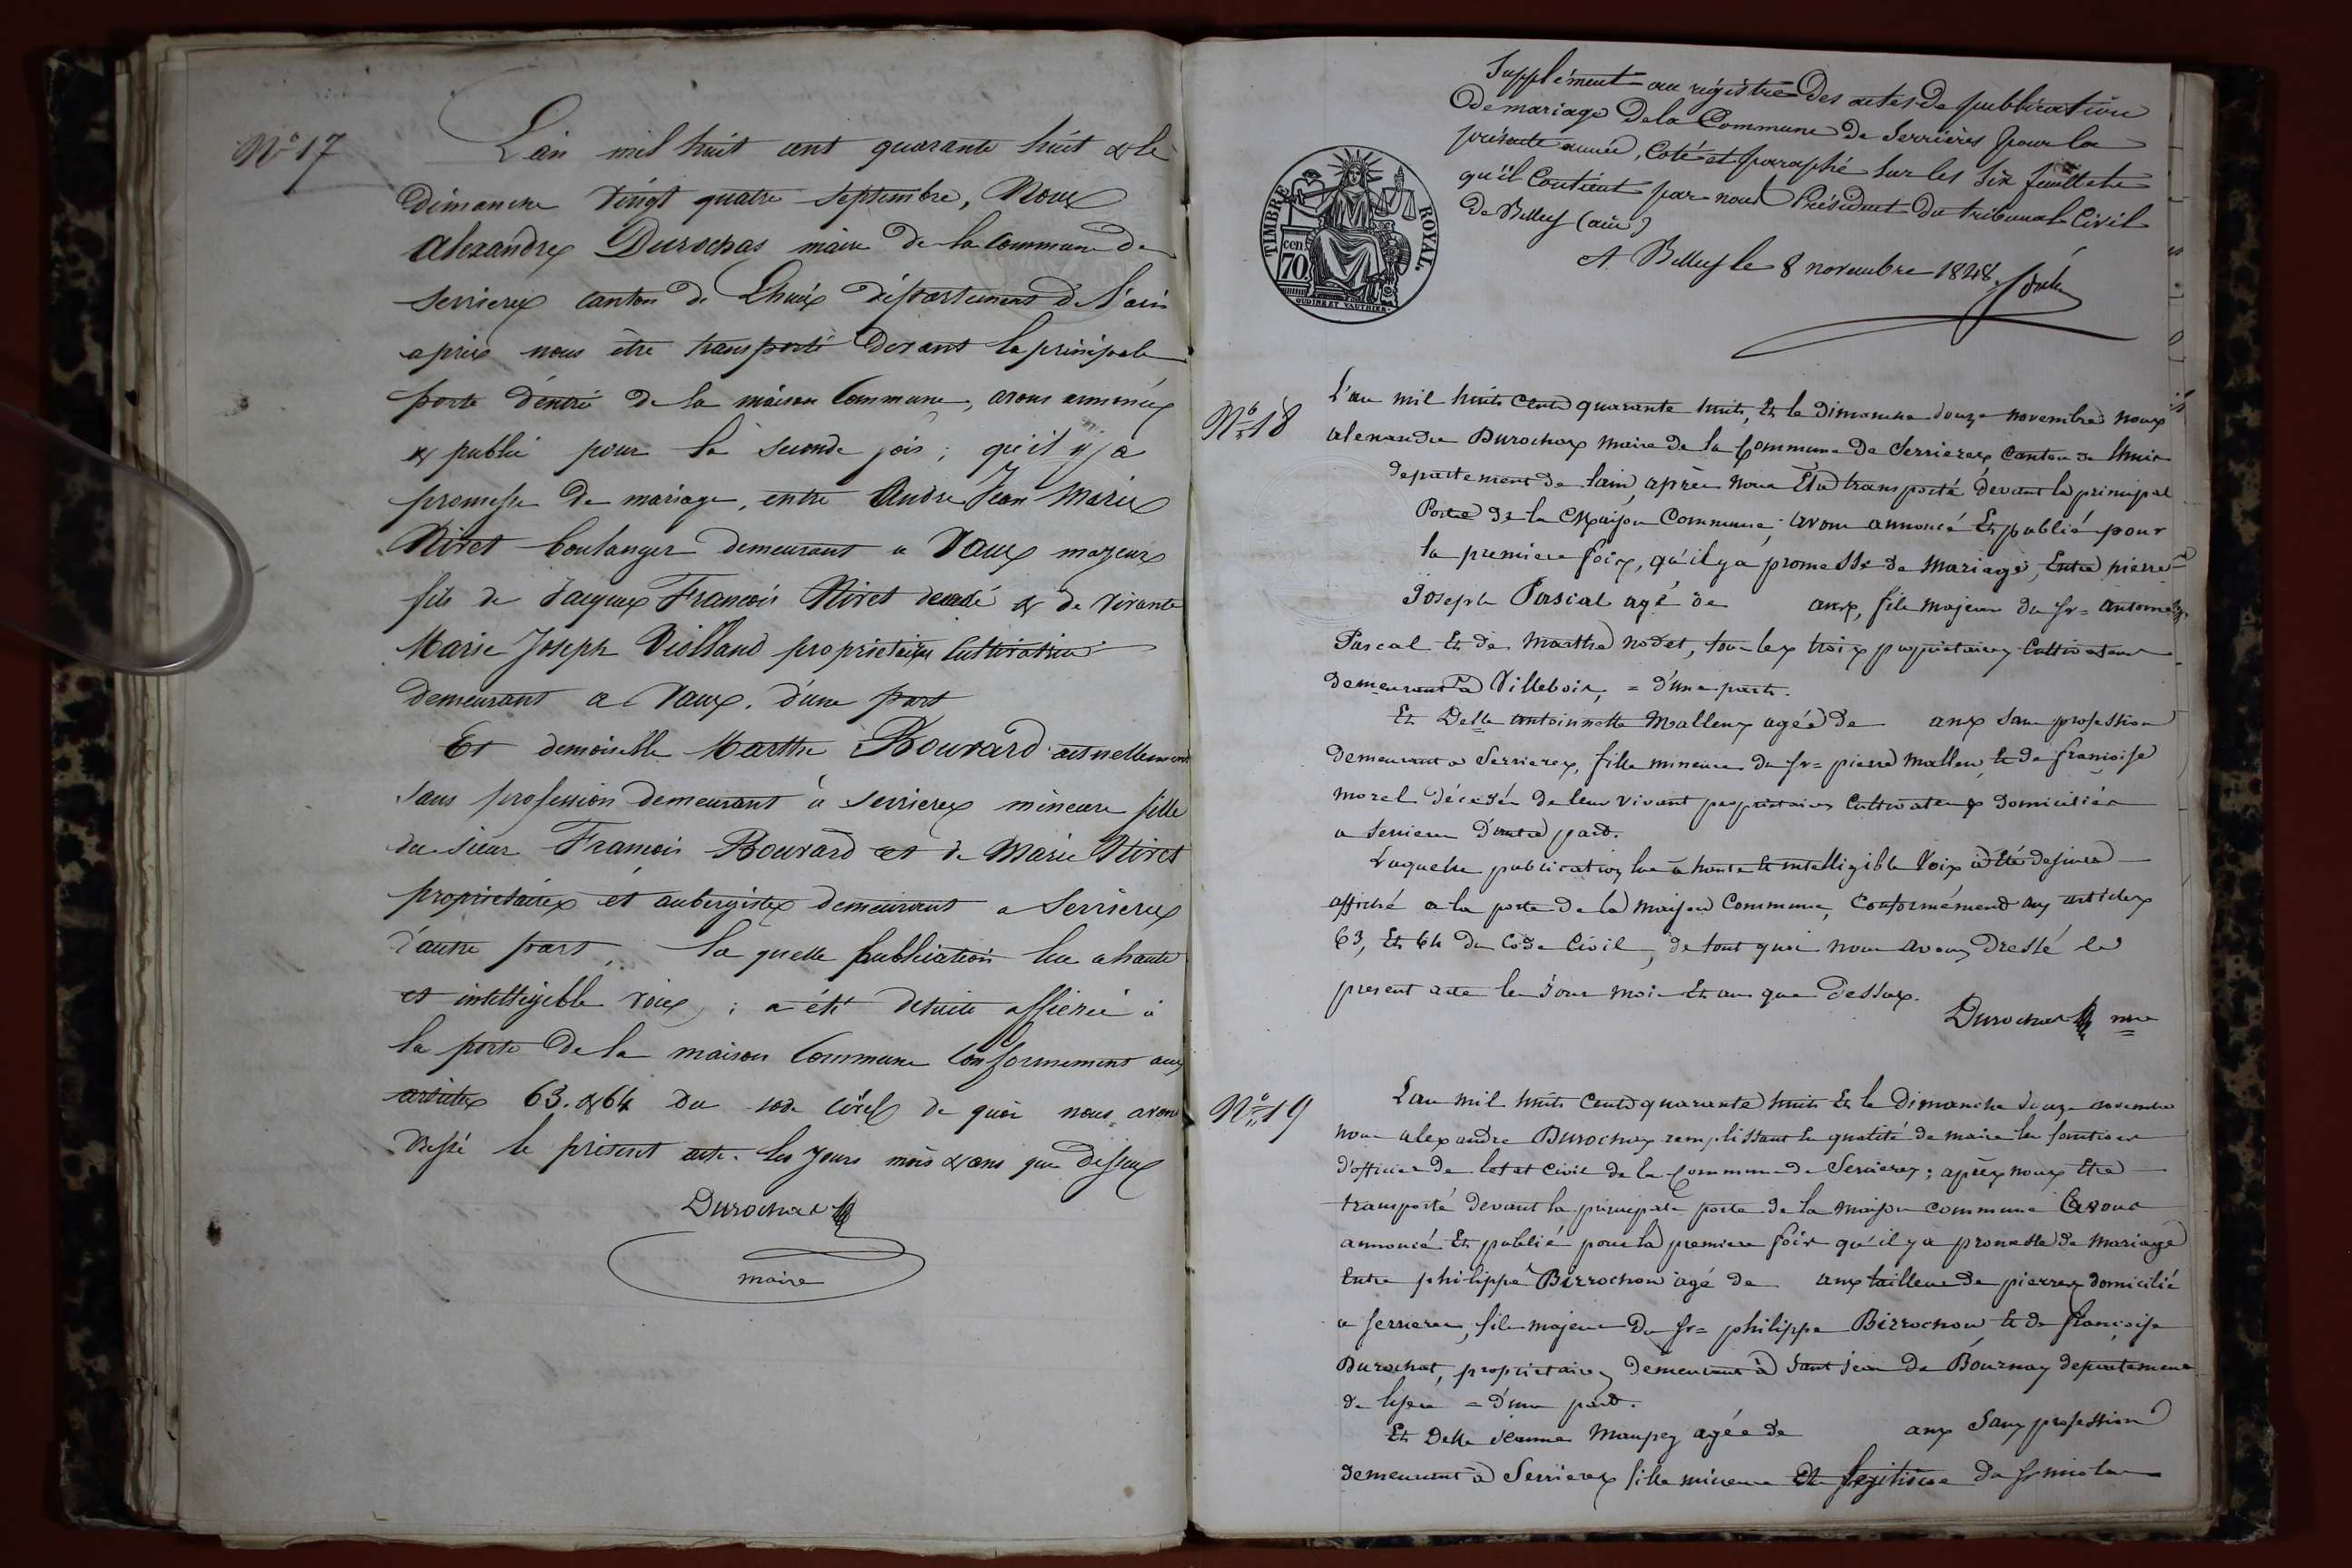 N° 17
L'an mil huit cent quarante huit & le
dimanche vingt quatre septembre, Nous
Alexandre Durochas maire de la commune de
Serrieres canton de Lhuis département de l'ain
apres nous être transporté devant la principale
porte d'entrée de la maison Commune, avons annoncé
& publié pour la seconde fois, qu'il y a
promesse de mariage, entre André Jean Marie
Nivet boulanger demeurant a Vaux majeur
fils de Jacques François Nivet décédé & de vivante
Marie Joseph Violland proprietaire cultivatrice
demeurant a Vaux. d'une part
Et demoiselle Marthe Bouvard actuellement
sans profession demeurant à Serrieres mineure fille
du sieur François Bouvard et de Marie Nivet
proprietaires et aubergistes demeurant a Serrieres
d'autre part, la quelle publication lue a haute
et intelligible voix ; a été desuite affichée à
la porte de la maison Commune conformement aux
articles 63. & 64 du code civil de quoi nous avons
dressé le présent acte. les jours mois & ans que dessus
Durochat
maire
Supplément au régistre des actes de publication
de mariage de la Commune de Serrières pour la
présente année, coté et paraphé sur les six feuillets
qu'il contient par nous Président du tribunal Civil
de Belley (ain)
A Belley le 8 novembre 1848.
TIMBRE ROYAL.
70 cen.
OUDINE ET VAUTHIER.
N° 18
L'an mil huits cents quarante huits, Et le dimanche douze novembre nous
alexandre Durochas maire de la Commune de Serrieres Canton de Lhuis
departement de lain, après nous être transporté devant la principal
Porte de la Maison Commune, avons annoncé Et publié pour
la premiere fois, qu'il y a promesse de mariage, Entre pierre
Joseph Pascal agé de ans, fils majeur du sr= antoine
Pascal Et de Marthe Nodet, tous les trois proprietaires Cultivateurs
demeurant a Villebois, = d'une part.
Et Delle antoinnette Malleux agée de ans sans profession
demeurant a Serrieres, fille mineure du sr= pierre Malleu, Et de françoise
morel décédée de leur vivant proprietaires Cultivateurs domiciliés
a Serrieres d'autre part.
Laquelle publication lue à haute Et intelligible Voix a été desuite
affiché a la porte de la maison Commune, Conformément aux articles
63, Et 64 du Code Civil, de tout quoi nous avons dressé le
present acte les Jour mois Et an que dessus.
Durochat mre
N° 19
L'an mil huits Cents quarante huits Et le Dimanche douze novembre
nous alexandre Durochas remplissant en qualité de maire les fonctions
d'officier de letat Civil de la Commune de Serrieres ; après nous être
transporté devant la principale porte de la maison commune avons
annoncé Et publié pour la premiere fois qu'il y a promesse de Mariage
Entre philippe Birrochon agé de ans tailleur de pierres domicilié
a serrieres, fils majeur du sr= philippe Birrochon Et de françoise
Durochat, proprietaires demeurant à Saint Jean de Bournay departement
de lisere = d'une part.
Et Delle Jeanne Maupez agée de ans Sans profession
demeurant a Serrieres fille mineure Et legitime du sr nicolas